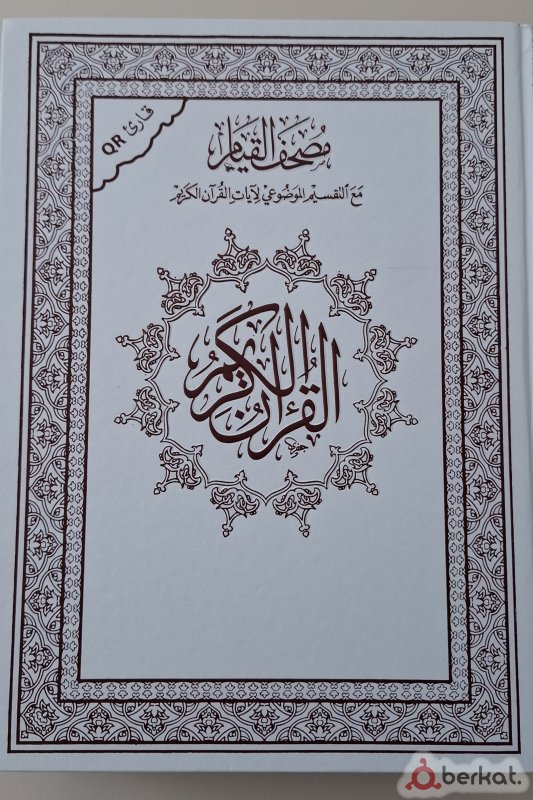 قارئ QR
مُصْحَف القِيَام
مَعَ التَّقسِيْم المَوضُوعِي لِآيَاتِ القُرآنِ الكَرِيْمِ
القُرْآنُ الكَرِيمُ
berkat.